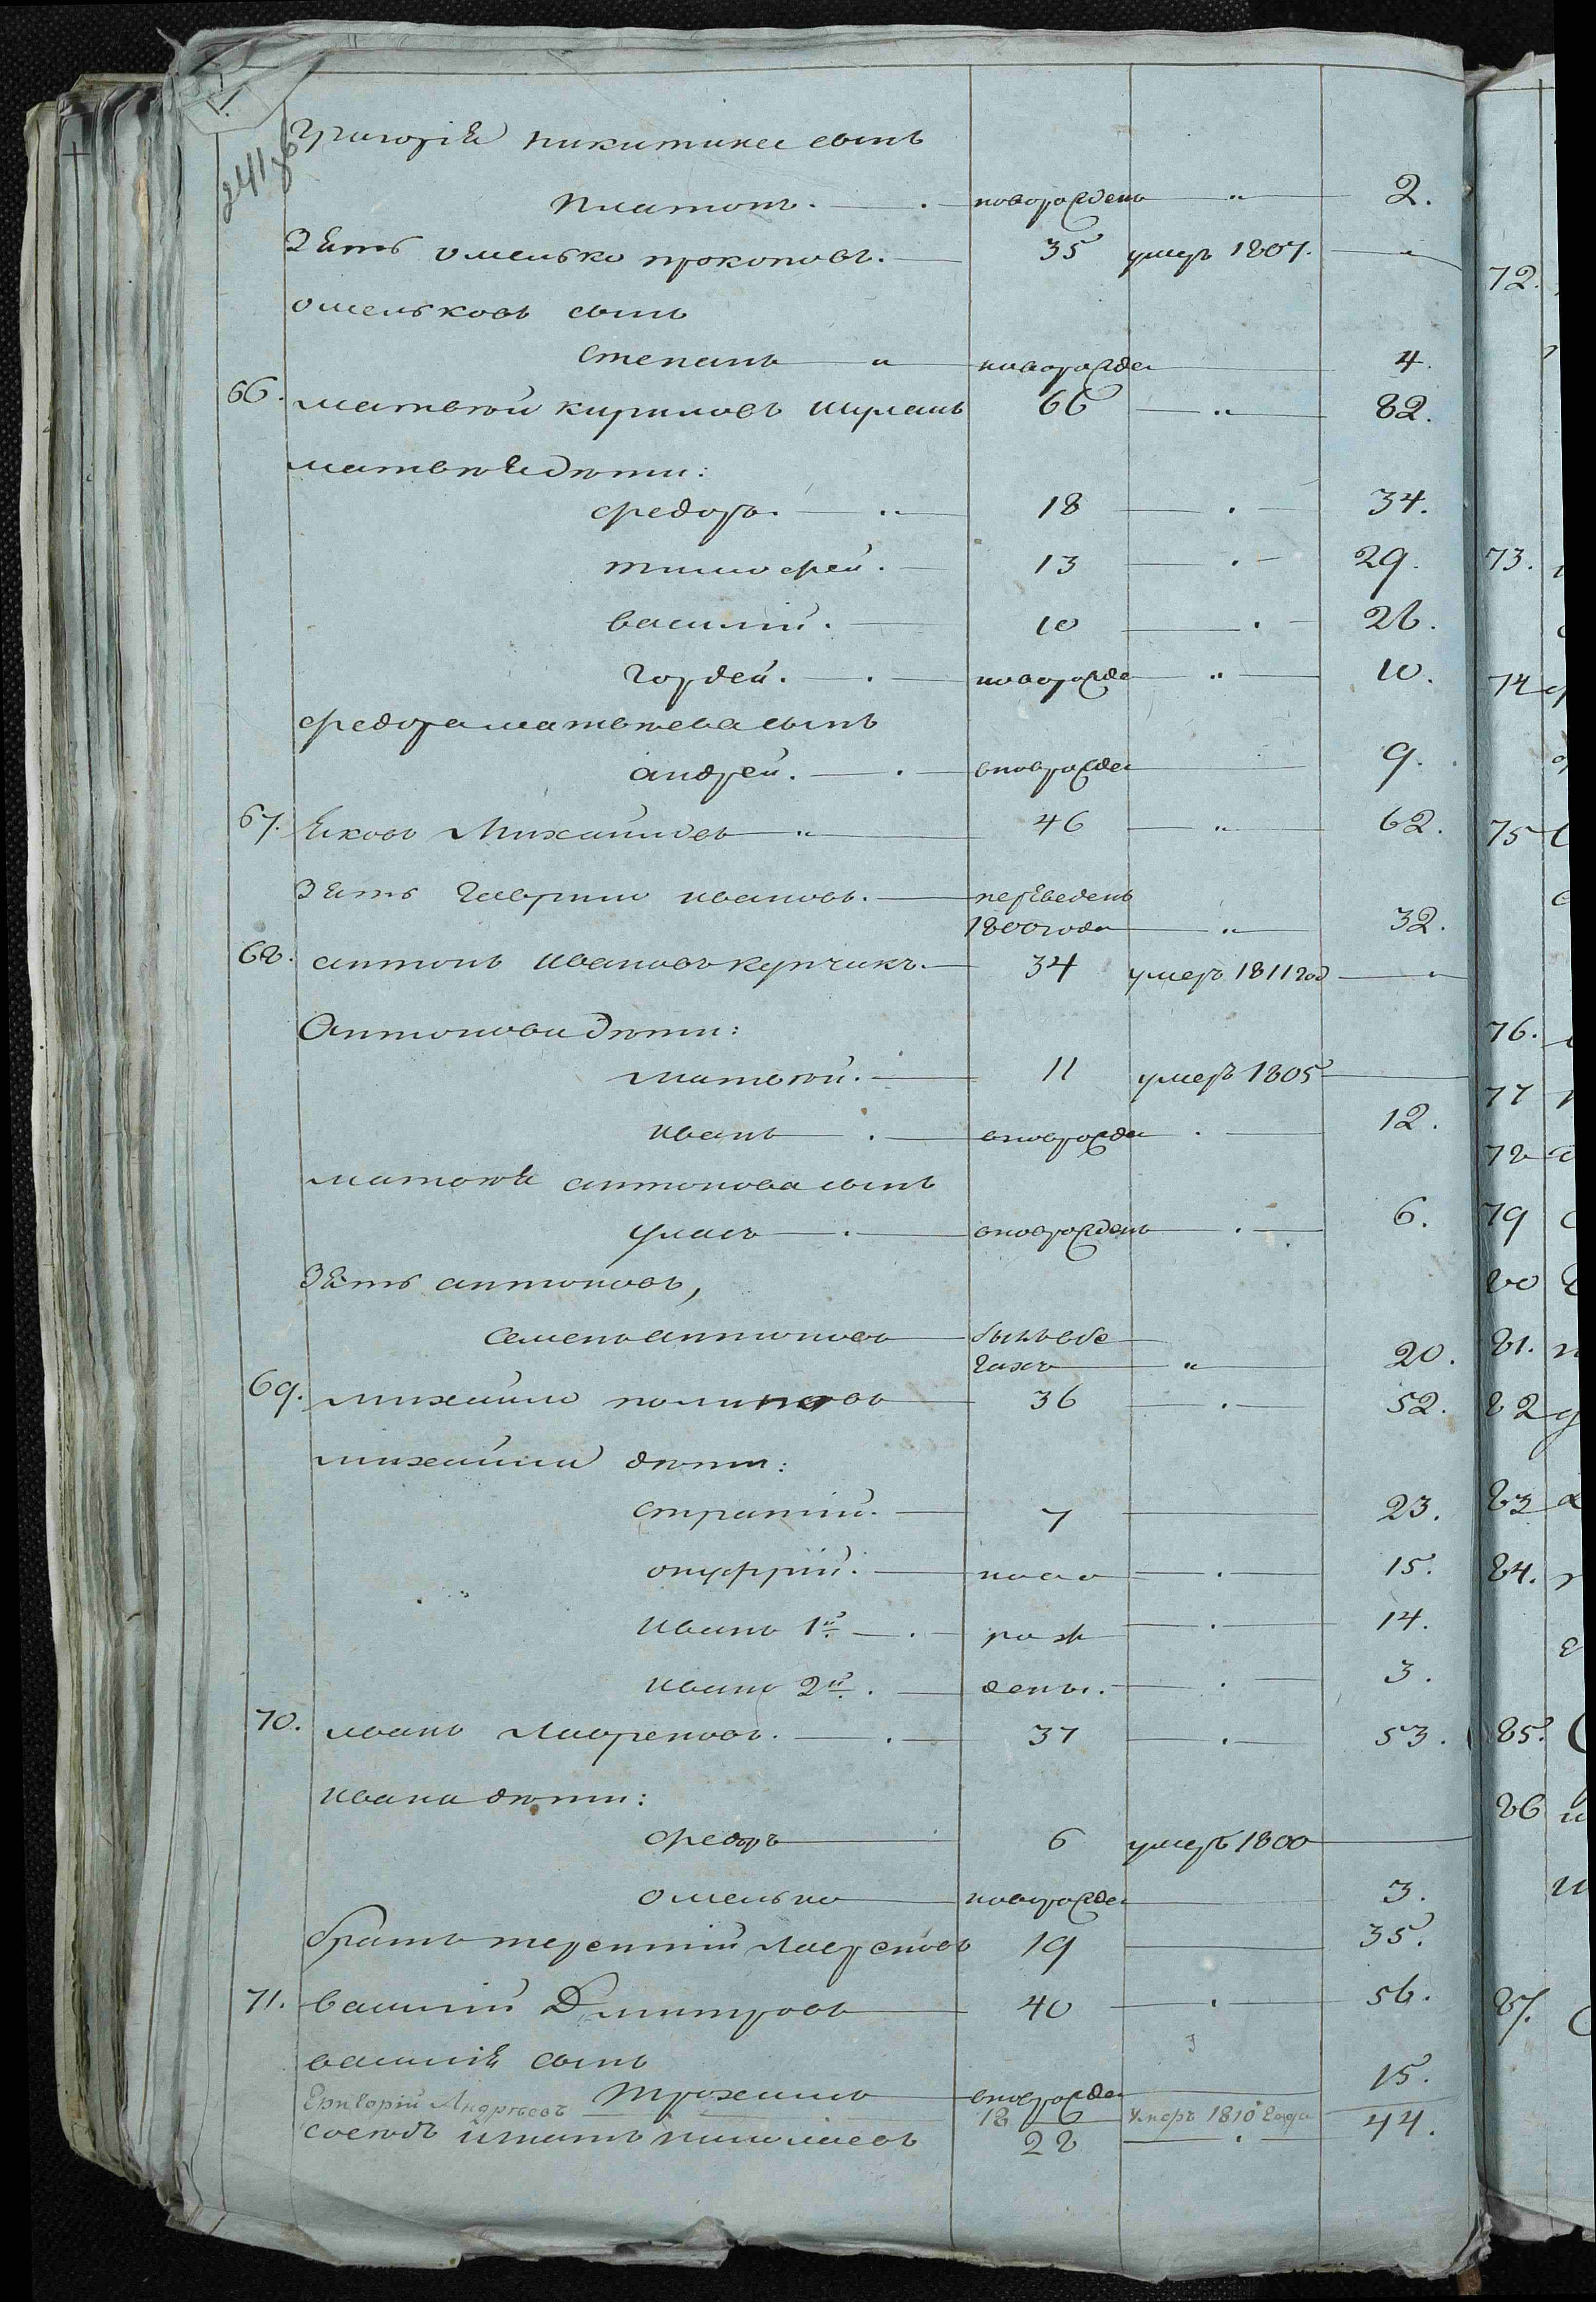 241 об
Григорія Никитина сынъ
Платонъ. новорожденъ " 2.
Зять Омелько Прокоповъ. 35 умеръ 1807.
Омельковъ сынъ
Степанъ " новорожде 4.
66. Матвѣй Кириловъ 66 " 82.
Матвѣя дѣти:
Федоръ. " 18 34.
Тимофей. 13 29.
Василій. 10 26.
Гордей. новорожде " 10.
Федора Матвѣева сынъ
Андрей. вноврожде 9.
67. Яковъ Михайловъ " 46 " 62.
Зять Гаврило Ивановъ. переведенъ
1800 года " 32.
68. Антонъ Ивановъ Купчикъ. 34 умеръ 1811 год
Антонови дѣти:
Матвѣй. 11 умеръ 1805
Иванъ вноврожде 12.
Матвѣя Антонова сынъ
Уласъ вноврожденъ 6.
Зять Антоновъ,
Семенъ Антоновъ былъ в бе
гахъ " 20.
69. Михайло 36 52.
Михайли дѣти:
Стратій. 7 23.
Онуфрій. ново 15.
Иванъ 1й рож 14.
Иванъ 2й. дены. 3.
70. Иванъ Лавреновъ. 37 53.
Ивана дѣти:
Федоръ 6 умеръ 1800
Омелько новорожде 3.
братъ Терентій Лавреновъ 19 35.
71. Василій Дмитровъ 40 56.
Василія сынъ
Трохимъ вноврожде 15.
Григорій Андреевъ 18 умеръ 1810 года
сосѣдъ Игнатъ 28 44.
72.
73.
74
75
76.
77
78
79
80
81.
82
83
84.
85.
86
87.